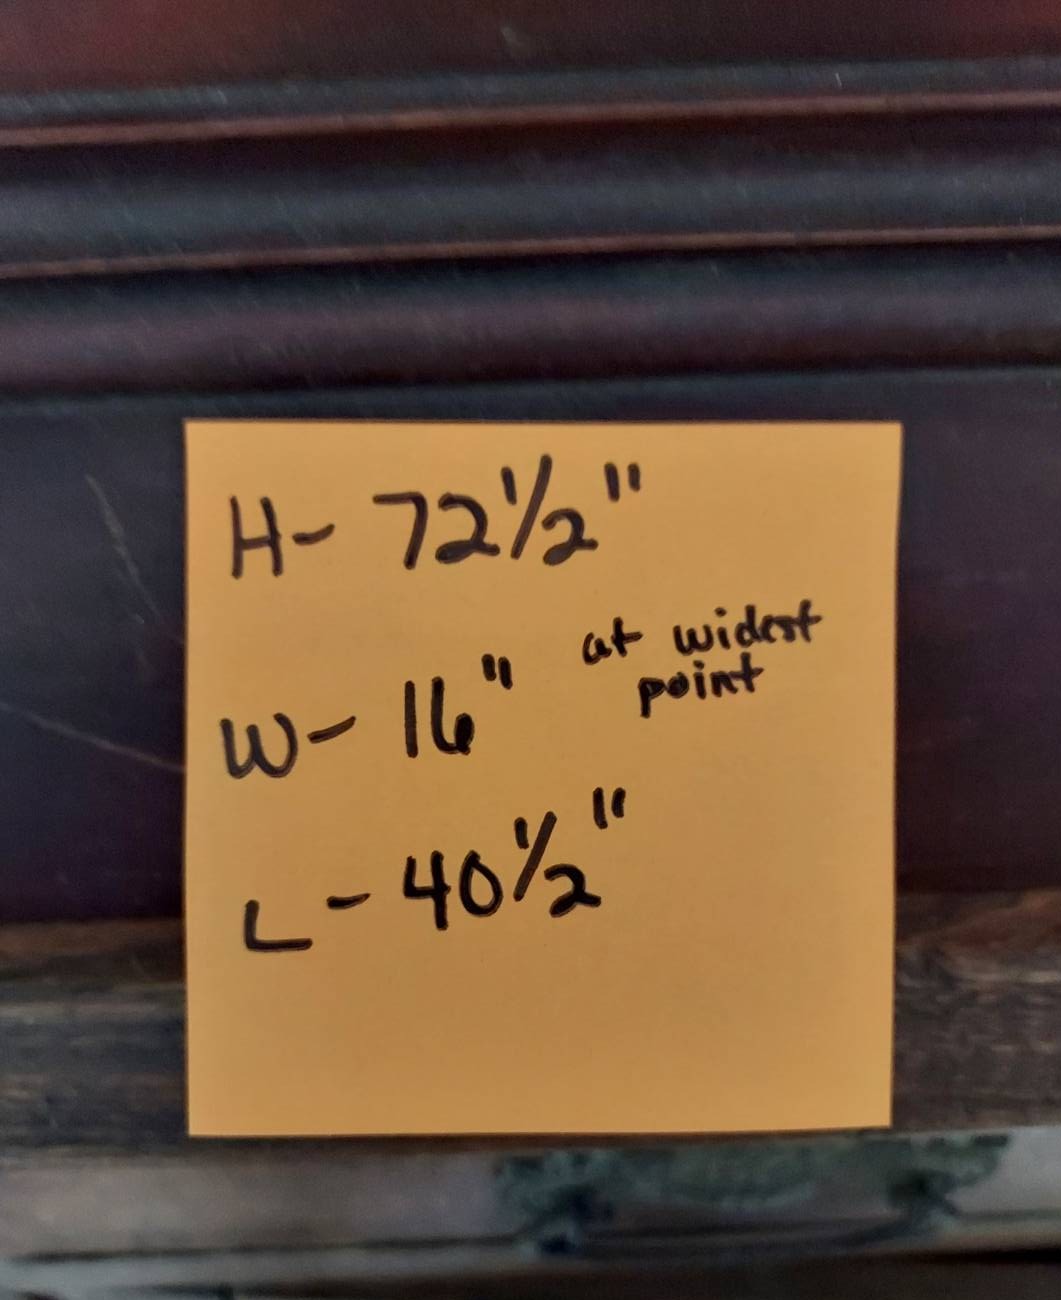 H- 72 1/2"
W- 16" at widest
point
L - 40 1/2"